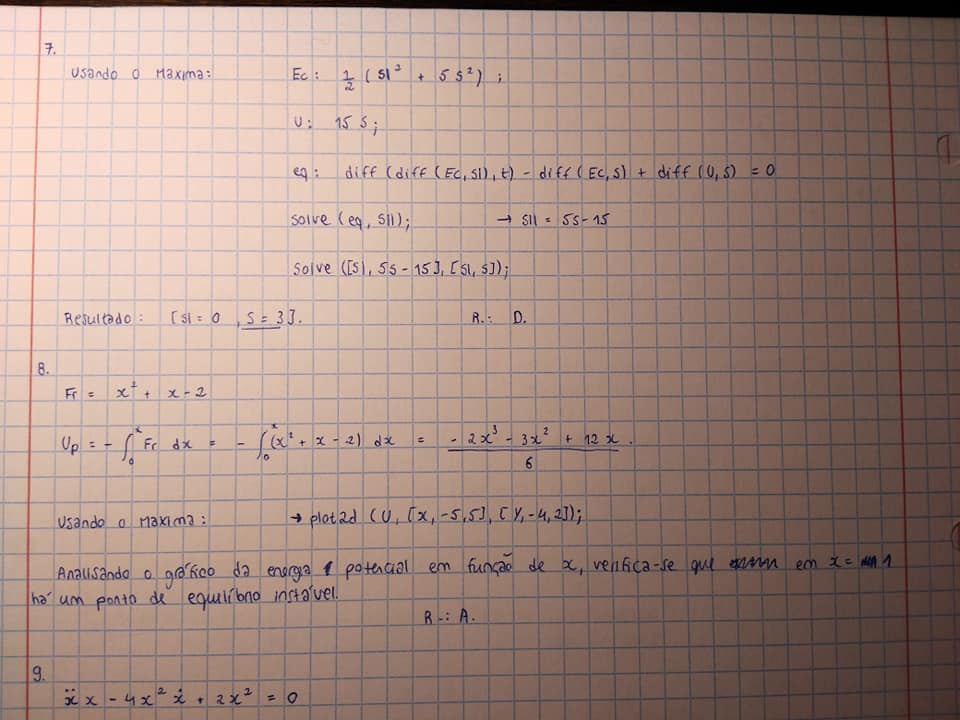 7.
Usando o Maxima: Ec: 1/2 (s1² + 5 s²) ;
U: 15 s;
eq: diff (diff (Ec, s1), t) - diff (Ec, s) + diff (U, s) = 0
solve (eq, s11); → s11 = 5s-15
solve ([s1, 5s-15], [s1, s]);
Resultado: [s1 = 0 , s = 3]. R.: D.
8.
Fr = x² + x - 2
Up = - ∫₀ˣ Fr dx = - ∫₀ˣ (x² + x - 2) dx = (- 2x³ - 3x² + 12 x)/6 .
Usando o maxima: → plot2d (U, [x, -5,5], [y, -4, 2]);
Analisando o gráfico da energia potencial em função de x, verifica-se que em x = 1
há um ponto de equilíbrio instável.
R.: A.
9.
ẍ x - 4x² ẋ + 2x² = 0